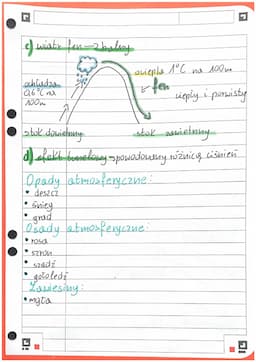 c) wiatr fen – zhalny
ociepla 1°C na 100m
ochładza
0,6°C na
100m
fen
ciepły i porywisty
stok dowietrzny
stok zawietrzny
d) efekt tunelowy - spowodowany różnicą ciśnień
Opady atmosferyczne:
• deszcz
• śnieg
• grad
Osady atmosferyczne:
• rosa
• szron
• szadź
• gołoledź
Zawiesiny:
• mgła